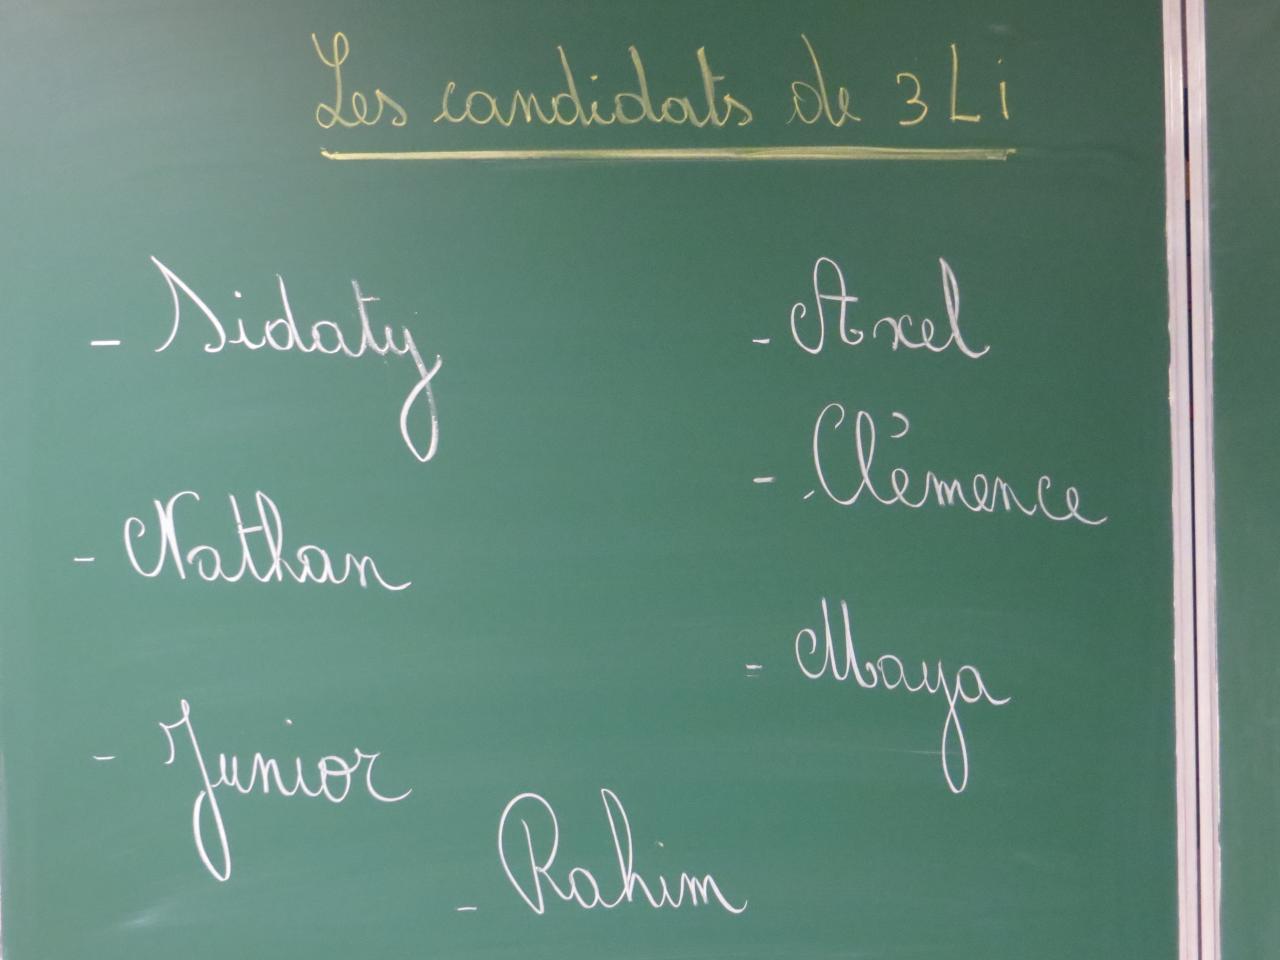 Les candidats de 3Li
- Sidaty
- Nathan
- Junior
- Axel
- Clémence
- Maya
- Rahim